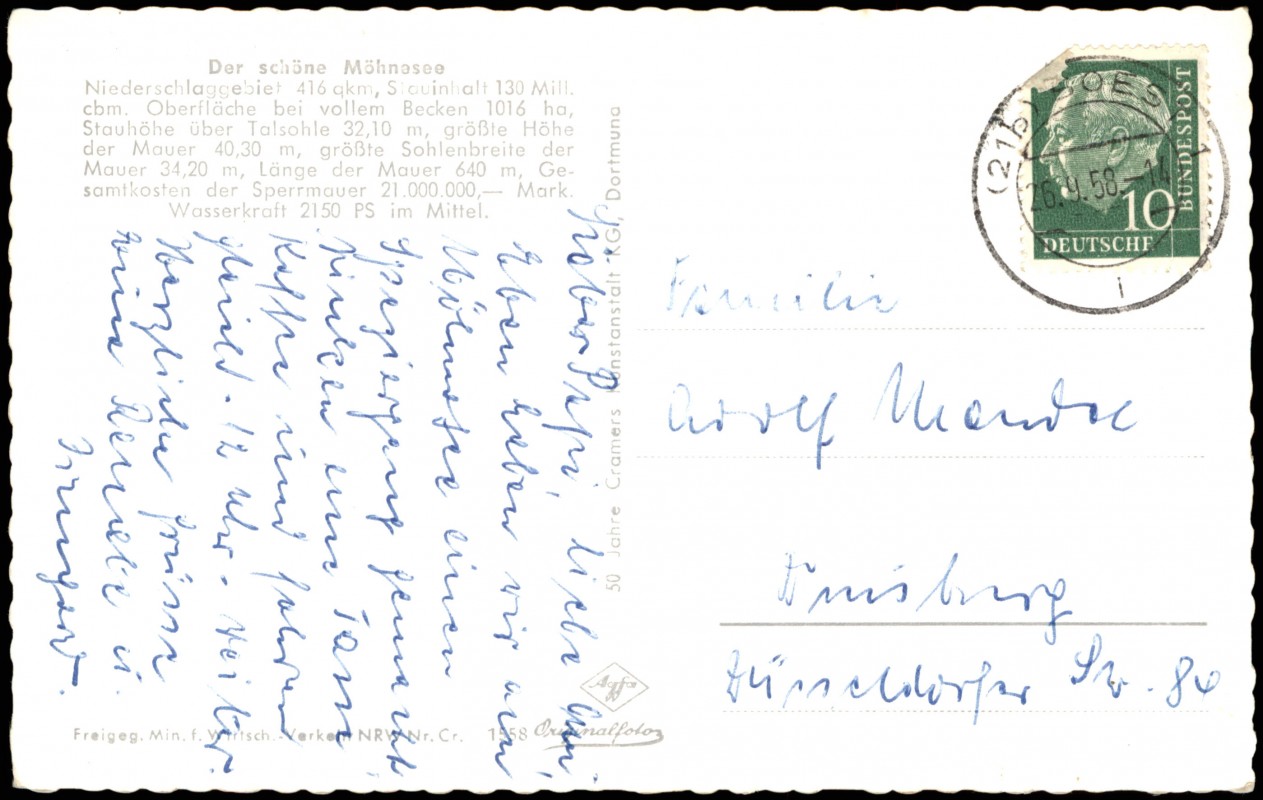 Der schöne Möhnesee
Niederschlaggebiet 416 qkm, Stauinhalt 130 Mill.
cbm. Oberfläche bei vollem Becken 1016 ha,
Stauhöhe über Talsohle 32,10 m, größte Höhe
der Mauer 40,30 m, größte Sohlenbreite der
Mauer 34,20 m, Länge der Mauer 640 m, Ge-
samtkosten der Sperrmauer 21.000.000,— Mark.
Wasserkraft 2150 PS im Mittel.
lieber liebe
Eben haben wir am
Möhnesee einen
Spaziergang gemacht,
trinken eine Tasse
Kaffee und fahren
gleich - 12 Uhr - weiter.
Herzliche Grüsse
eure Renate u.
Irmgard.
50 Jahre Cramers Kunstanstalt KG, Dortmund
Freigeg. Min. f. Wirtsch. Verkehr NRW Nr. Cr. 1558
Agfa
Originalfoto
(21b) SOEST 1
26.9.58.-14
i
10
DEUTSCHE
BUNDESPOST
Familie
Adolf
Duisburg
Düsseldorfer Str. 80